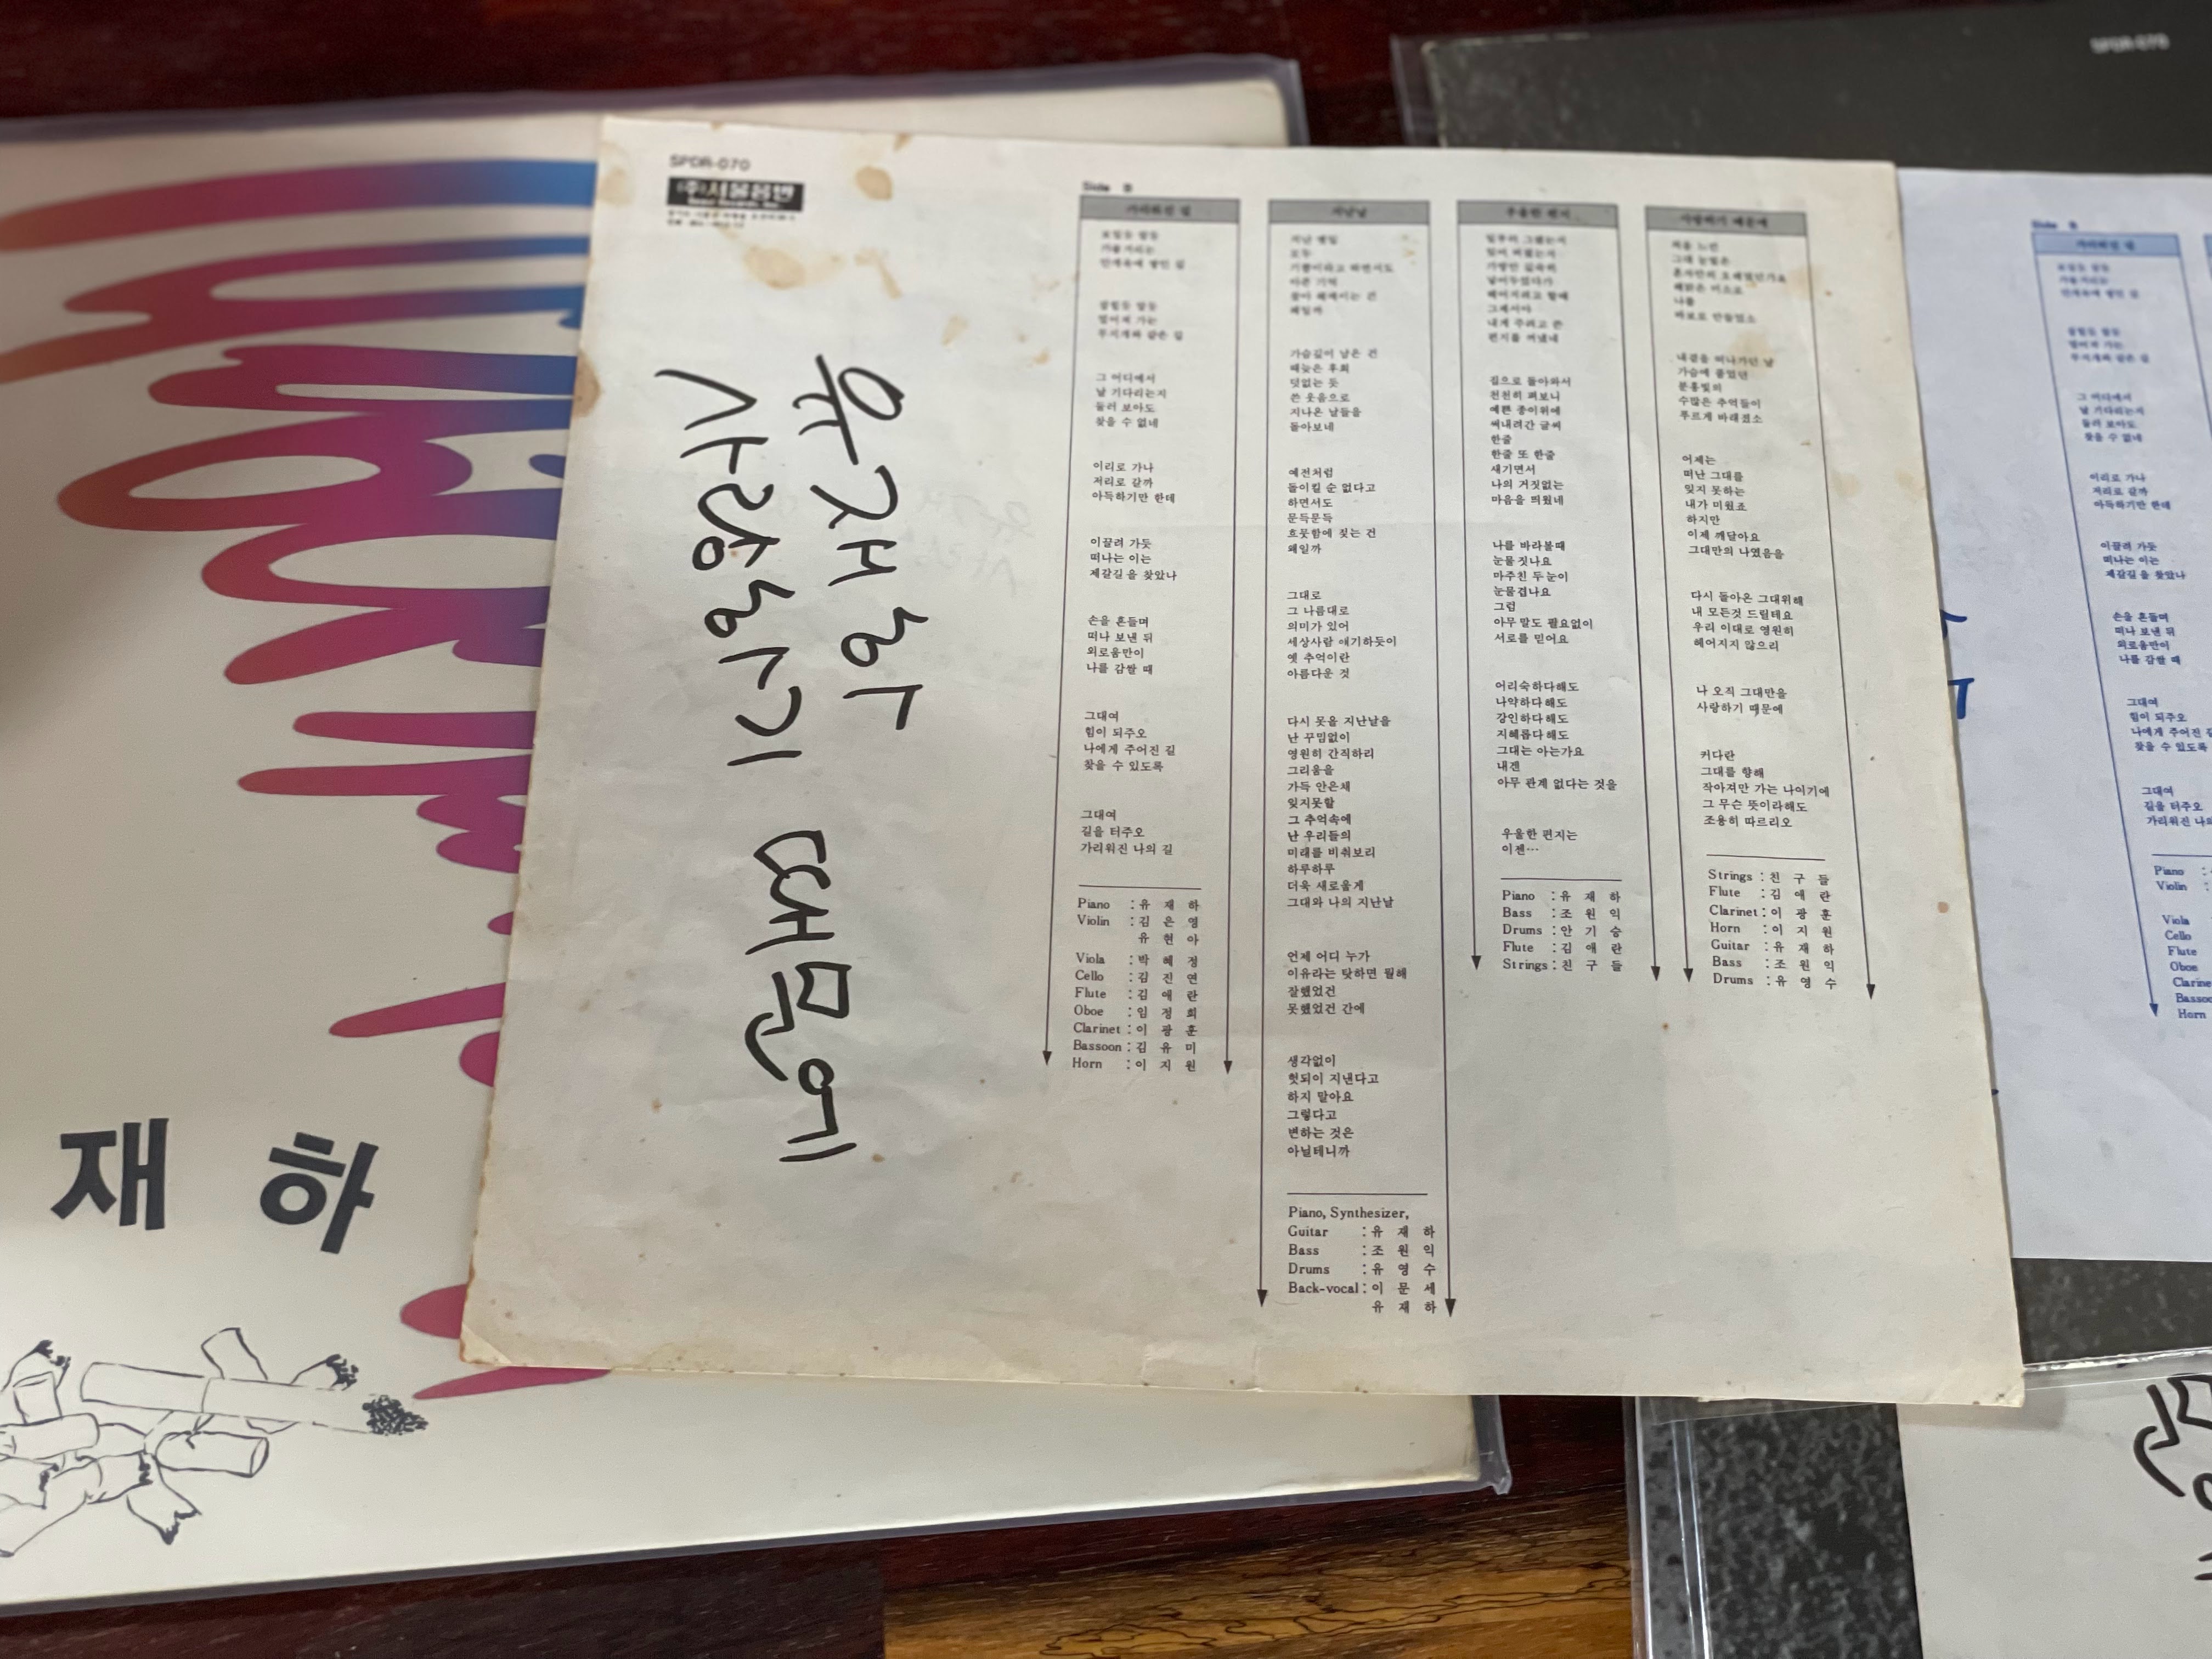 SPDR-070
(주)서울음반
유재하
사랑하기 때문에
Side B
가리워진 길
보일듯 말듯
가물거리는
안개속에 쌓인 길
잡힐듯 말듯
멀어져 가는
무지개와 같은 길
그 어디에서
날 기다리는지
둘러 보아도
찾을 수 없네
이리로 가나
저리로 갈까
아득하기만 한데
이끌려 가듯
떠나는 이는
제갈길을 찾았나
손을 흔들며
떠나 보낸 뒤
외로움만이
나를 감쌀 때
그대여
힘이 되주오
나에게 주어진 길
찾을 수 있도록
그대여
길을 터주오
가리워진 나의 길
Piano : 유 재 하
Violin : 김 은 영
유 현 아
Viola : 박 혜 정
Cello : 김 진 연
Flute : 김 애 란
Oboe : 임 정 희
Clarinet : 이 광 훈
Bassoon : 김 유 미
Horn : 이 지 원
지난날
지난 옛일
모두
기쁨이라고 하면서도
아픈 기억
찾아 헤매이는 건
왜일까
가슴깊이 남은 건
때늦은 후회
덧없는 듯
쓴 웃음으로
지나온 날들을
돌아보네
예전처럼
돌이킬 순 없다고
하면서도
문득문득
흐뭇함에 젖는 건
왜일까
그대로
그 나름대로
의미가 있어
세상사람 얘기하듯이
옛 추억이란
아름다운 것
다시 못올 지난날을
난 꾸밈없이
영원히 간직하리
그리움을
가득 안은채
잊지못할
그 추억속에
난 우리들의
미래를 비춰보리
하루하루
더욱 새로웁게
그대와 나의 지난날
언제 어디 누가
이유라는 탓하면 뭘해
잘했었건
못했었건 간에
생각없이
헛되이 지낸다고
하지 말아요
그렇다고
변하는 것은
아닐테니까
Piano, Synthesizer,
Guitar : 유 재 하
Bass : 조 원 익
Drums : 유 영 수
Back-vocal : 이 문 세
유 재 하
우울한 편지
일부러 그랬는지
잊어 버렸는지
가방안 깊숙히
넣어두었다가
헤어지려고 할때
그제서야
내게 주려고 쓴
편지를 꺼냈네
집으로 돌아와서
천천히 펴보니
예쁜 종이위에
써내려간 글씨
한줄
한줄 또 한줄
새기면서
나의 거짓없는
마음을 띄웠네
나를 바라볼때
눈물짓나요
마주친 두눈이
눈물겹나요
그럼
아무 말도 필요없이
서로를 믿어요
어리숙하다해도
나약하다해도
강인하다해도
지혜롭다해도
그대는 아는가요
내겐
아무 관계 없다는 것을
우울한 편지는
이젠…
Piano : 유 재 하
Bass : 조 원 익
Drums : 안 기 승
Flute : 김 애 란
Strings : 친 구 들
사랑하기 때문에
처음 느낀
그대 눈빛은
혼자만의 오해였던가요
해맑은 미소로
나를
바보로 만들었소
내곁을 떠나가던 날
가슴에 품었던
분홍빛의
수많은 추억들이
푸르게 바래졌소
어제는
떠난 그대를
잊지 못하는
내가 미웠죠
하지만
이제 깨달아요
그대만의 나였음을
다시 돌아온 그대위해
내 모든것 드릴테요
우리 이대로 영원히
헤어지지 않으리
나 오직 그대만을
사랑하기 때문에
커다란
그대를 향해
작아져만 가는 나이기에
그 무슨 뜻이라해도
조용히 따르리오
Strings : 친 구 들
Flute : 김 애 란
Clarinet : 이 광 훈
Horn : 이 지 원
Guitar : 유 재 하
Bass : 조 원 익
Drums : 유 영 수
재 하
SPDR-070
Side B
가리워진 길
보일듯 말듯
가물거리는
안개속에 쌓인 길
잡힐듯 말듯
멀어져 가는
무지개와 같은 길
그 어디에서
날 기다리는지
둘러 보아도
찾을 수 없네
이리로 가나
저리로 갈까
아득하기만 한데
이끌려 가듯
떠나는 이는
제갈길을 찾았나
손을 흔들며
떠나 보낸 뒤
외로움만이
나를 감쌀 때
그대여
힘이 되주오
나에게 주어진 길
찾을 수 있도록
그대여
길을 터주오
가리워진 나의
Piano :
Violin :
Viola
Cello
Flute
Oboe
Horn